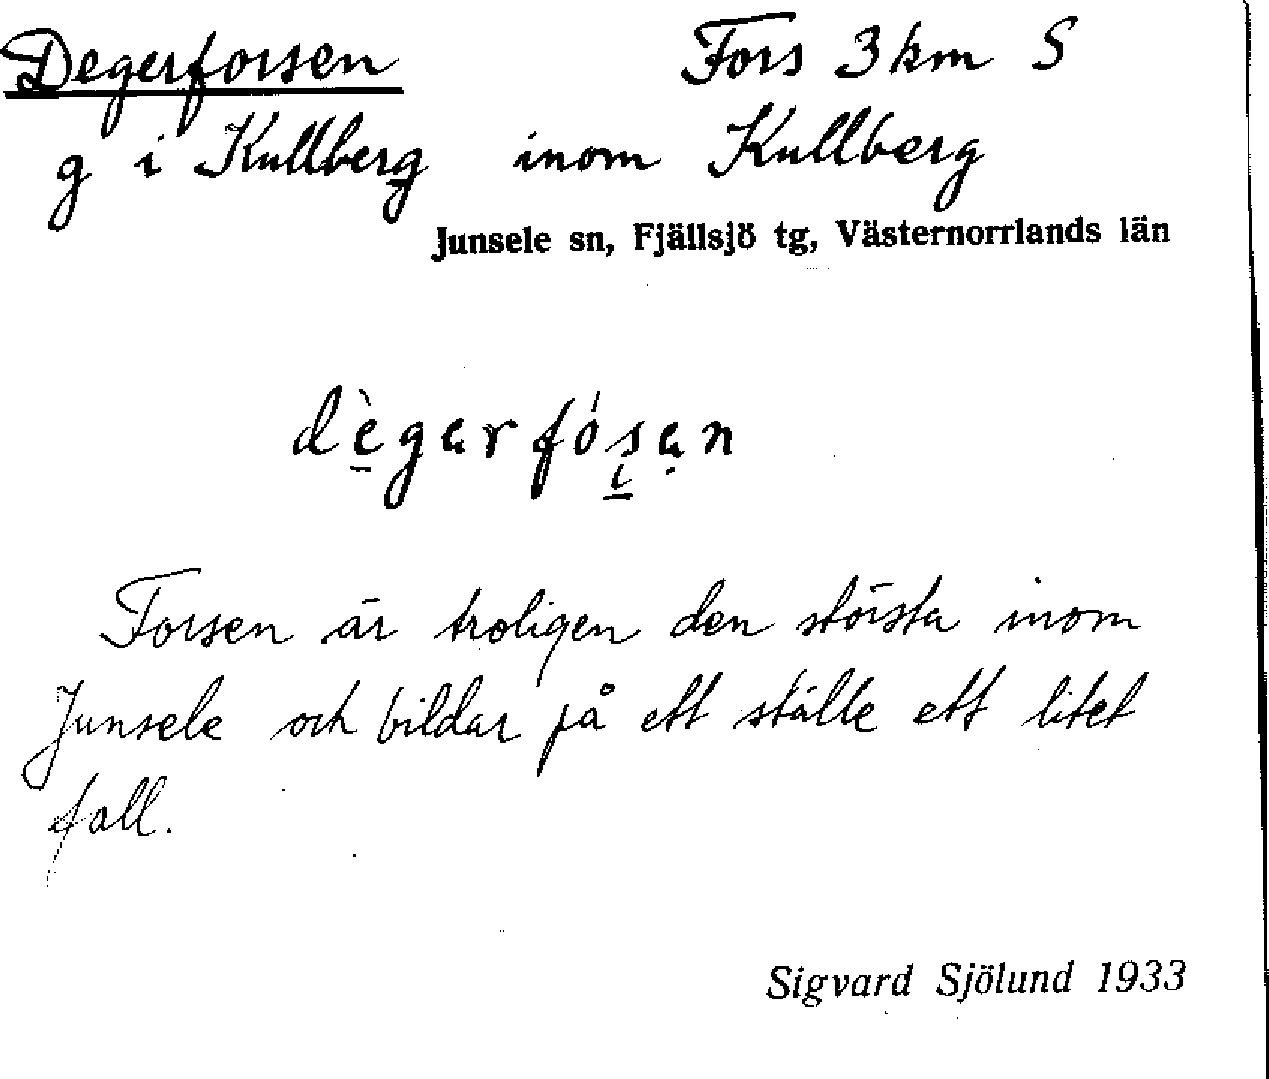 Degerforsen Fors 3 km S
g i Kullberg inom Kullberg
Junsele sn, Fjällsjö tg, Västernorrlands län
dègarfósan
Forsen är troligen den största inom
Junsele och bildar på ett ställe ett litet
fall.
Sigvard Sjölund 1933